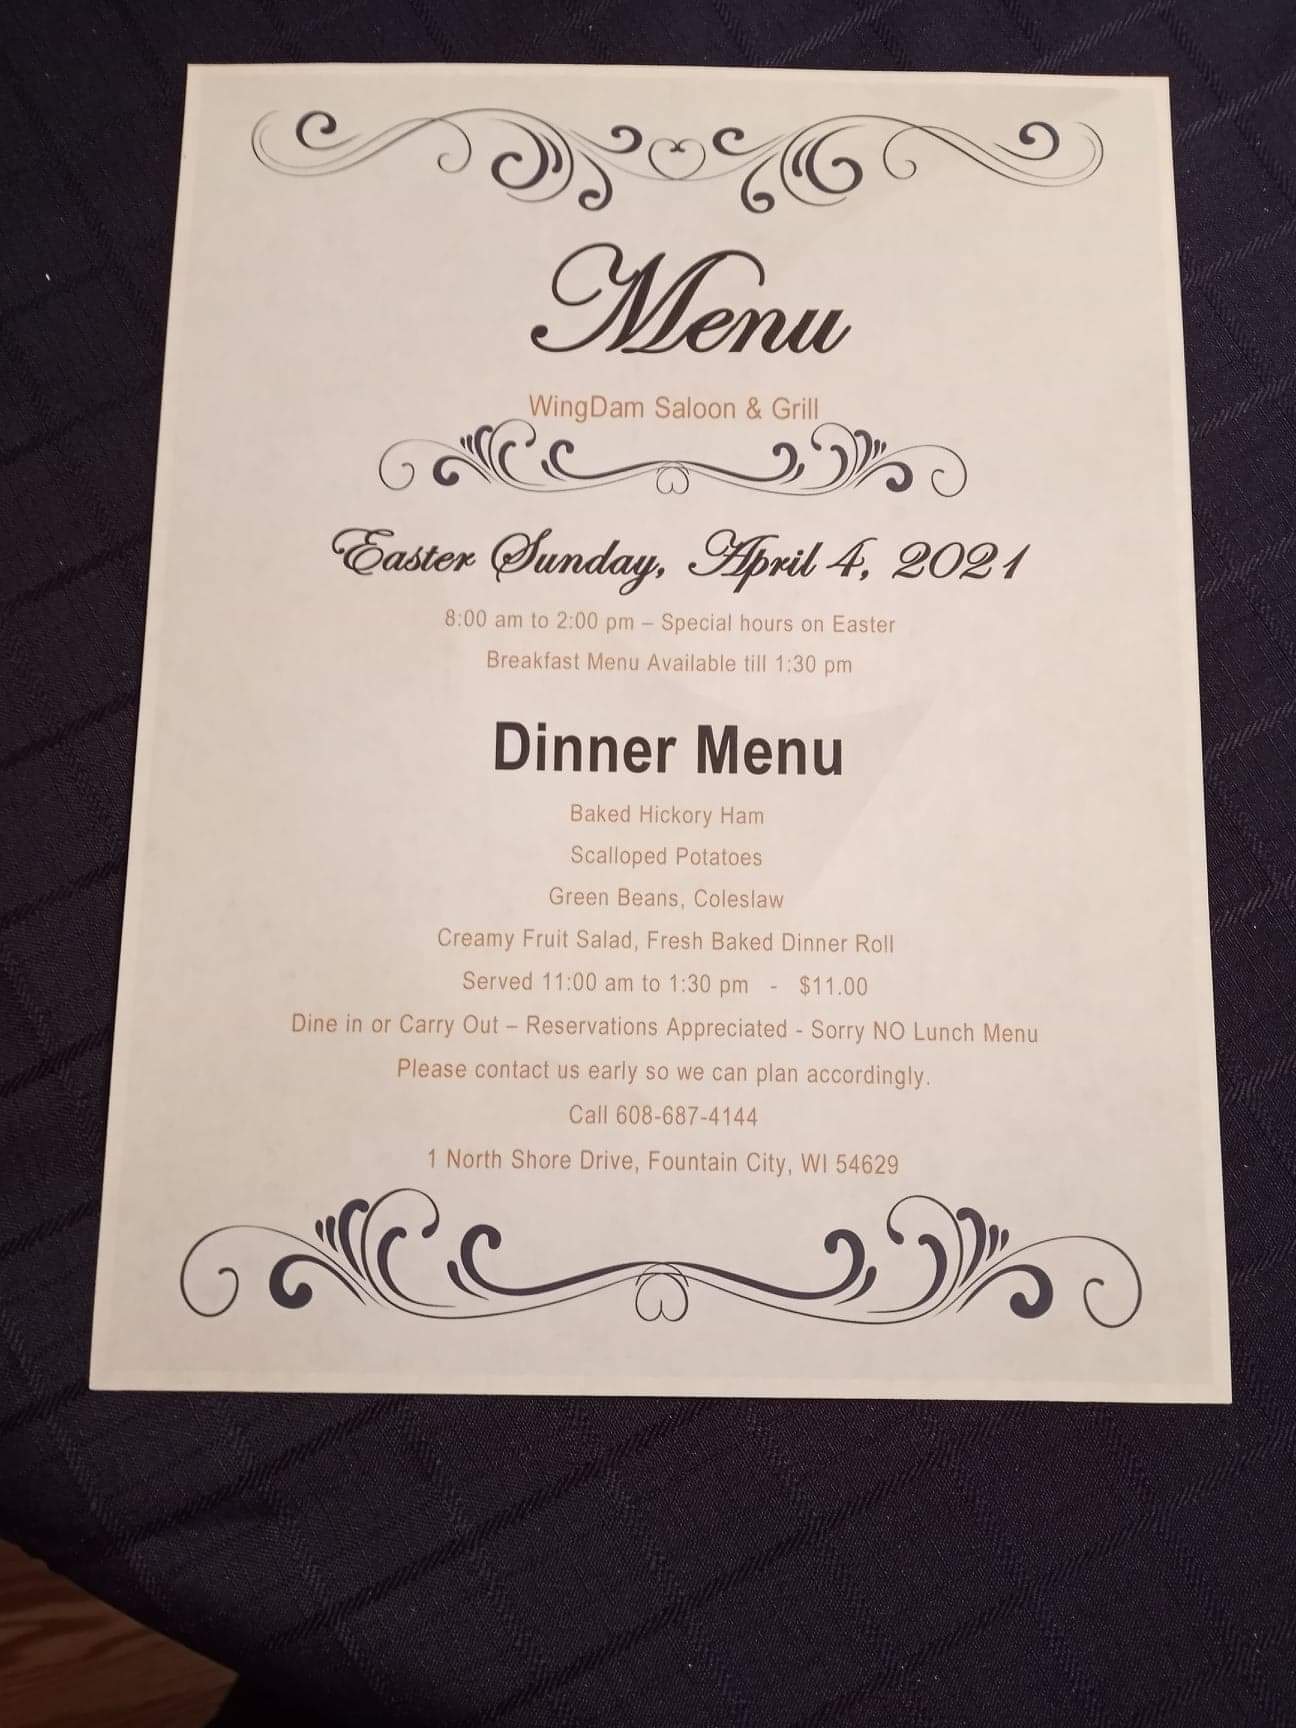 Menu
WingDam Saloon & Grill
Easter Sunday, April 4, 2021
8:00 am to 2:00 pm – Special hours on Easter
Breakfast Menu Available till 1:30 pm
Dinner Menu
Baked Hickory Ham
Scalloped Potatoes
Green Beans, Coleslaw
Creamy Fruit Salad, Fresh Baked Dinner Roll
Served 11:00 am to 1:30 pm - $11.00
Dine in or Carry Out – Reservations Appreciated - Sorry NO Lunch Menu
Please contact us early so we can plan accordingly.
Call 608-687-4144
1 North Shore Drive, Fountain City, WI 54629